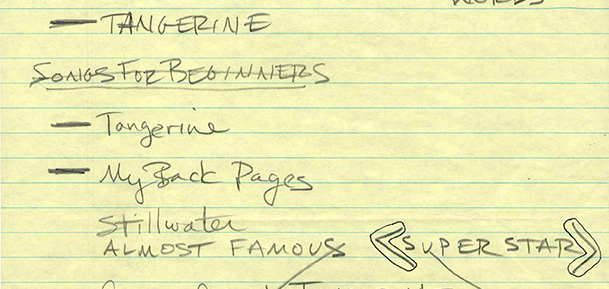 WORDS
— TANGERINE
SONGS FOR BEGINNERS
— Tangerine
— My Back Pages
Stillwater
ALMOST FAMOUS <SUPERSTAR>